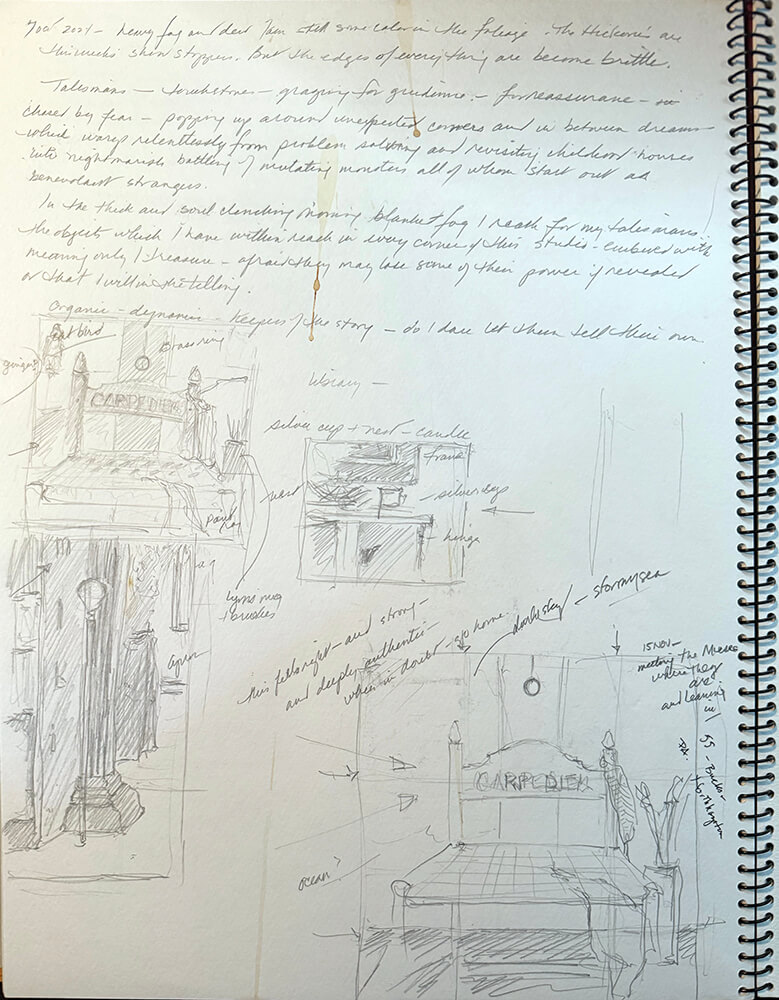 Nov 2021 - heavy fog and dew 7am still some color in the foliage. The Hickories are
this week's show stoppers. But the edges of everything are become brittle.
Talismans - touchstones - grasping for guidance - for reassurance -
chased by fear - popping up around unexpected corners and in between dreams
which warp relentlessly from problem solving and revisiting childhood houses
with nightmarish battling of mutating monsters all of whom start out as
benevolent strangers.
In the thick and soul clenching morning blanket fog I reach for my talismans
the objects which I have within reach in every corner of this studio - embued with
meaning only I treasure - afraid they may lose some of their power if revealed
or that I will in the telling.
Organic - dynamic - keepers of the story - do I dare let them tell their own
bird
Brass ring
ginger
CARPE DIEM
Library -
silver cup + nest - candle
frame
nest
silver cup
hinge
paint
Lyme mug
+ brushes
apron
this felt right - and strong -
and deeply authentic -
when in doubt - go home
dark sky - stormy sea
15 NOV -
meeting the Muse
where they
are
and leaning
in
CARPE DIEM
ocean?